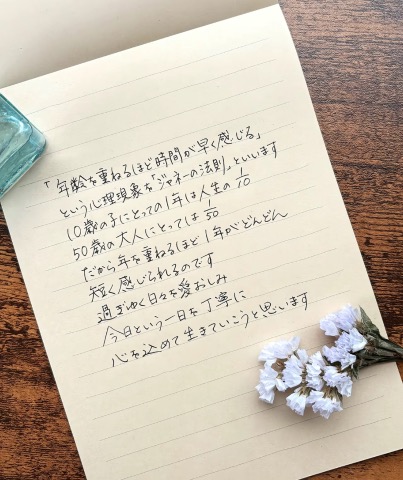 「年齢を重ねるほど時間が早く感じる」
という心理現象を「ジャネーの法則」といいます
10歳の子にとっての1年は人生の1/10
50歳の大人にとっては1/50
だから年を重ねるほど1年がどんどん
短く感じられるのです
過ぎゆく日々を愛おしみ
今日という一日を丁寧に
心を込めて生きていこうと思います